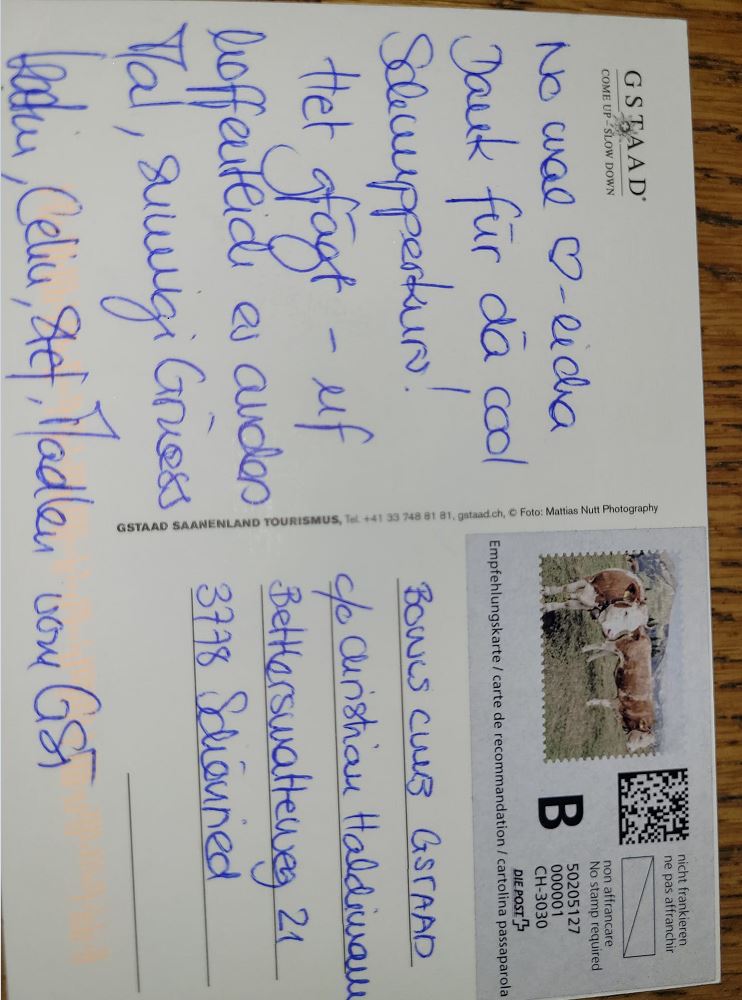 GSTAAD®
COME UP – SLOW DOWN
No mal ♡-licha
Dank für dä cool
Schnupperkurs!
Het gfägt – uf
hoffentlich es anders
Mal, sunnigi Grüess
Celin, Stef, Madlen vom GST
GSTAAD SAANENLAND TOURISMUS, Tel. +41 33 748 81 81, gstaad.ch, © Foto: Mattias Nutt Photography
nicht frankieren
ne pas affranchir
non affrancare
No stamp required
50205127
000001
CH-3030
DIE POST
B
Empfehlungskarte / carte de recommandation / cartolina passaparola
GSTAAD
c/o Christian Haldimann
21
3778 Schönried